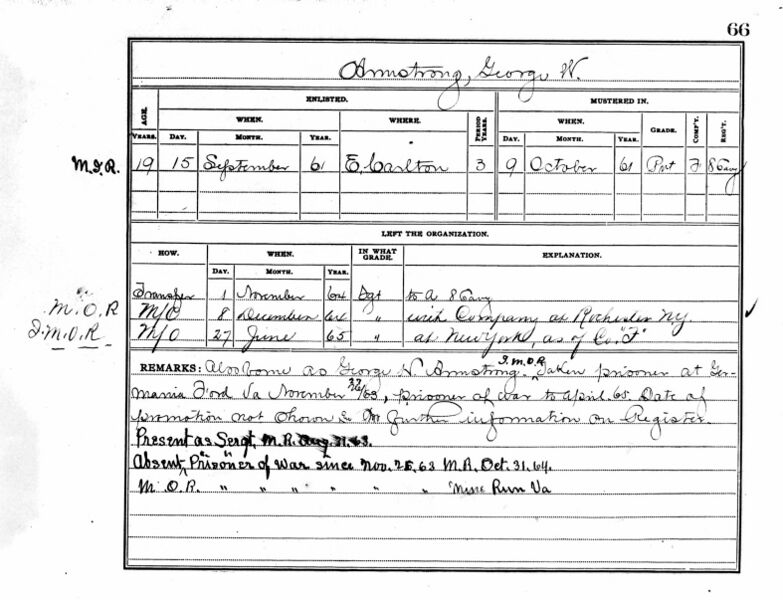 66
Armstrong, George W.
ENLISTED. MUSTERED IN.
AGE. WHEN. WHERE. PERIOD YEARS. WHEN. GRADE. COMP'Y. REG'T.
YEARS. DAY. MONTH. YEAR. DAY. MONTH. YEAR.
M.I.R. 19 15 September 61 E. Carlton 3 9 October 61 Pvt F 8 Cavy
LEFT THE ORGANIZATION.
HOW. WHEN. IN WHAT GRADE. EXPLANATION.
DAY. MONTH. YEAR.
Transfer 1 November 64 Sgt to A 8 Cavy
M.O.R M/O 8 December 64 " with Company at Rochester NY.
I.M.O.R. M/O 27 June 65 " at New York, as of Co. "F"
REMARKS: Also borne as George H. Armstrong. I.M.O.R. Taken prisoner at Ger-
mania Ford Va November /63, prisoner of war to April. 65. Date of
promotion not shown & no further information on Register.
Present as Sergt. M.R. Aug. 31. 63.
Absent, "Prisoner of War since Nov. 25, 63 M.R. Oct. 31. 64.
M.O.R. " " " " " " Run Va